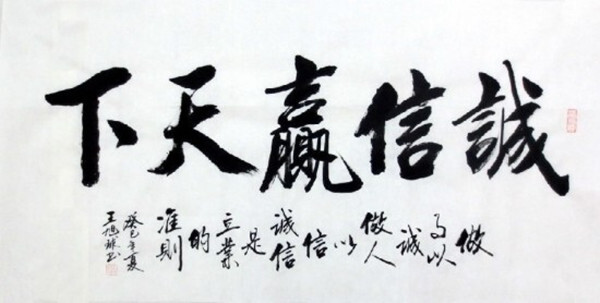 誠信贏天下
做
事以
誠
做人
以
信
誠信
是
立業
的
准則
癸巳年夏
王旭书